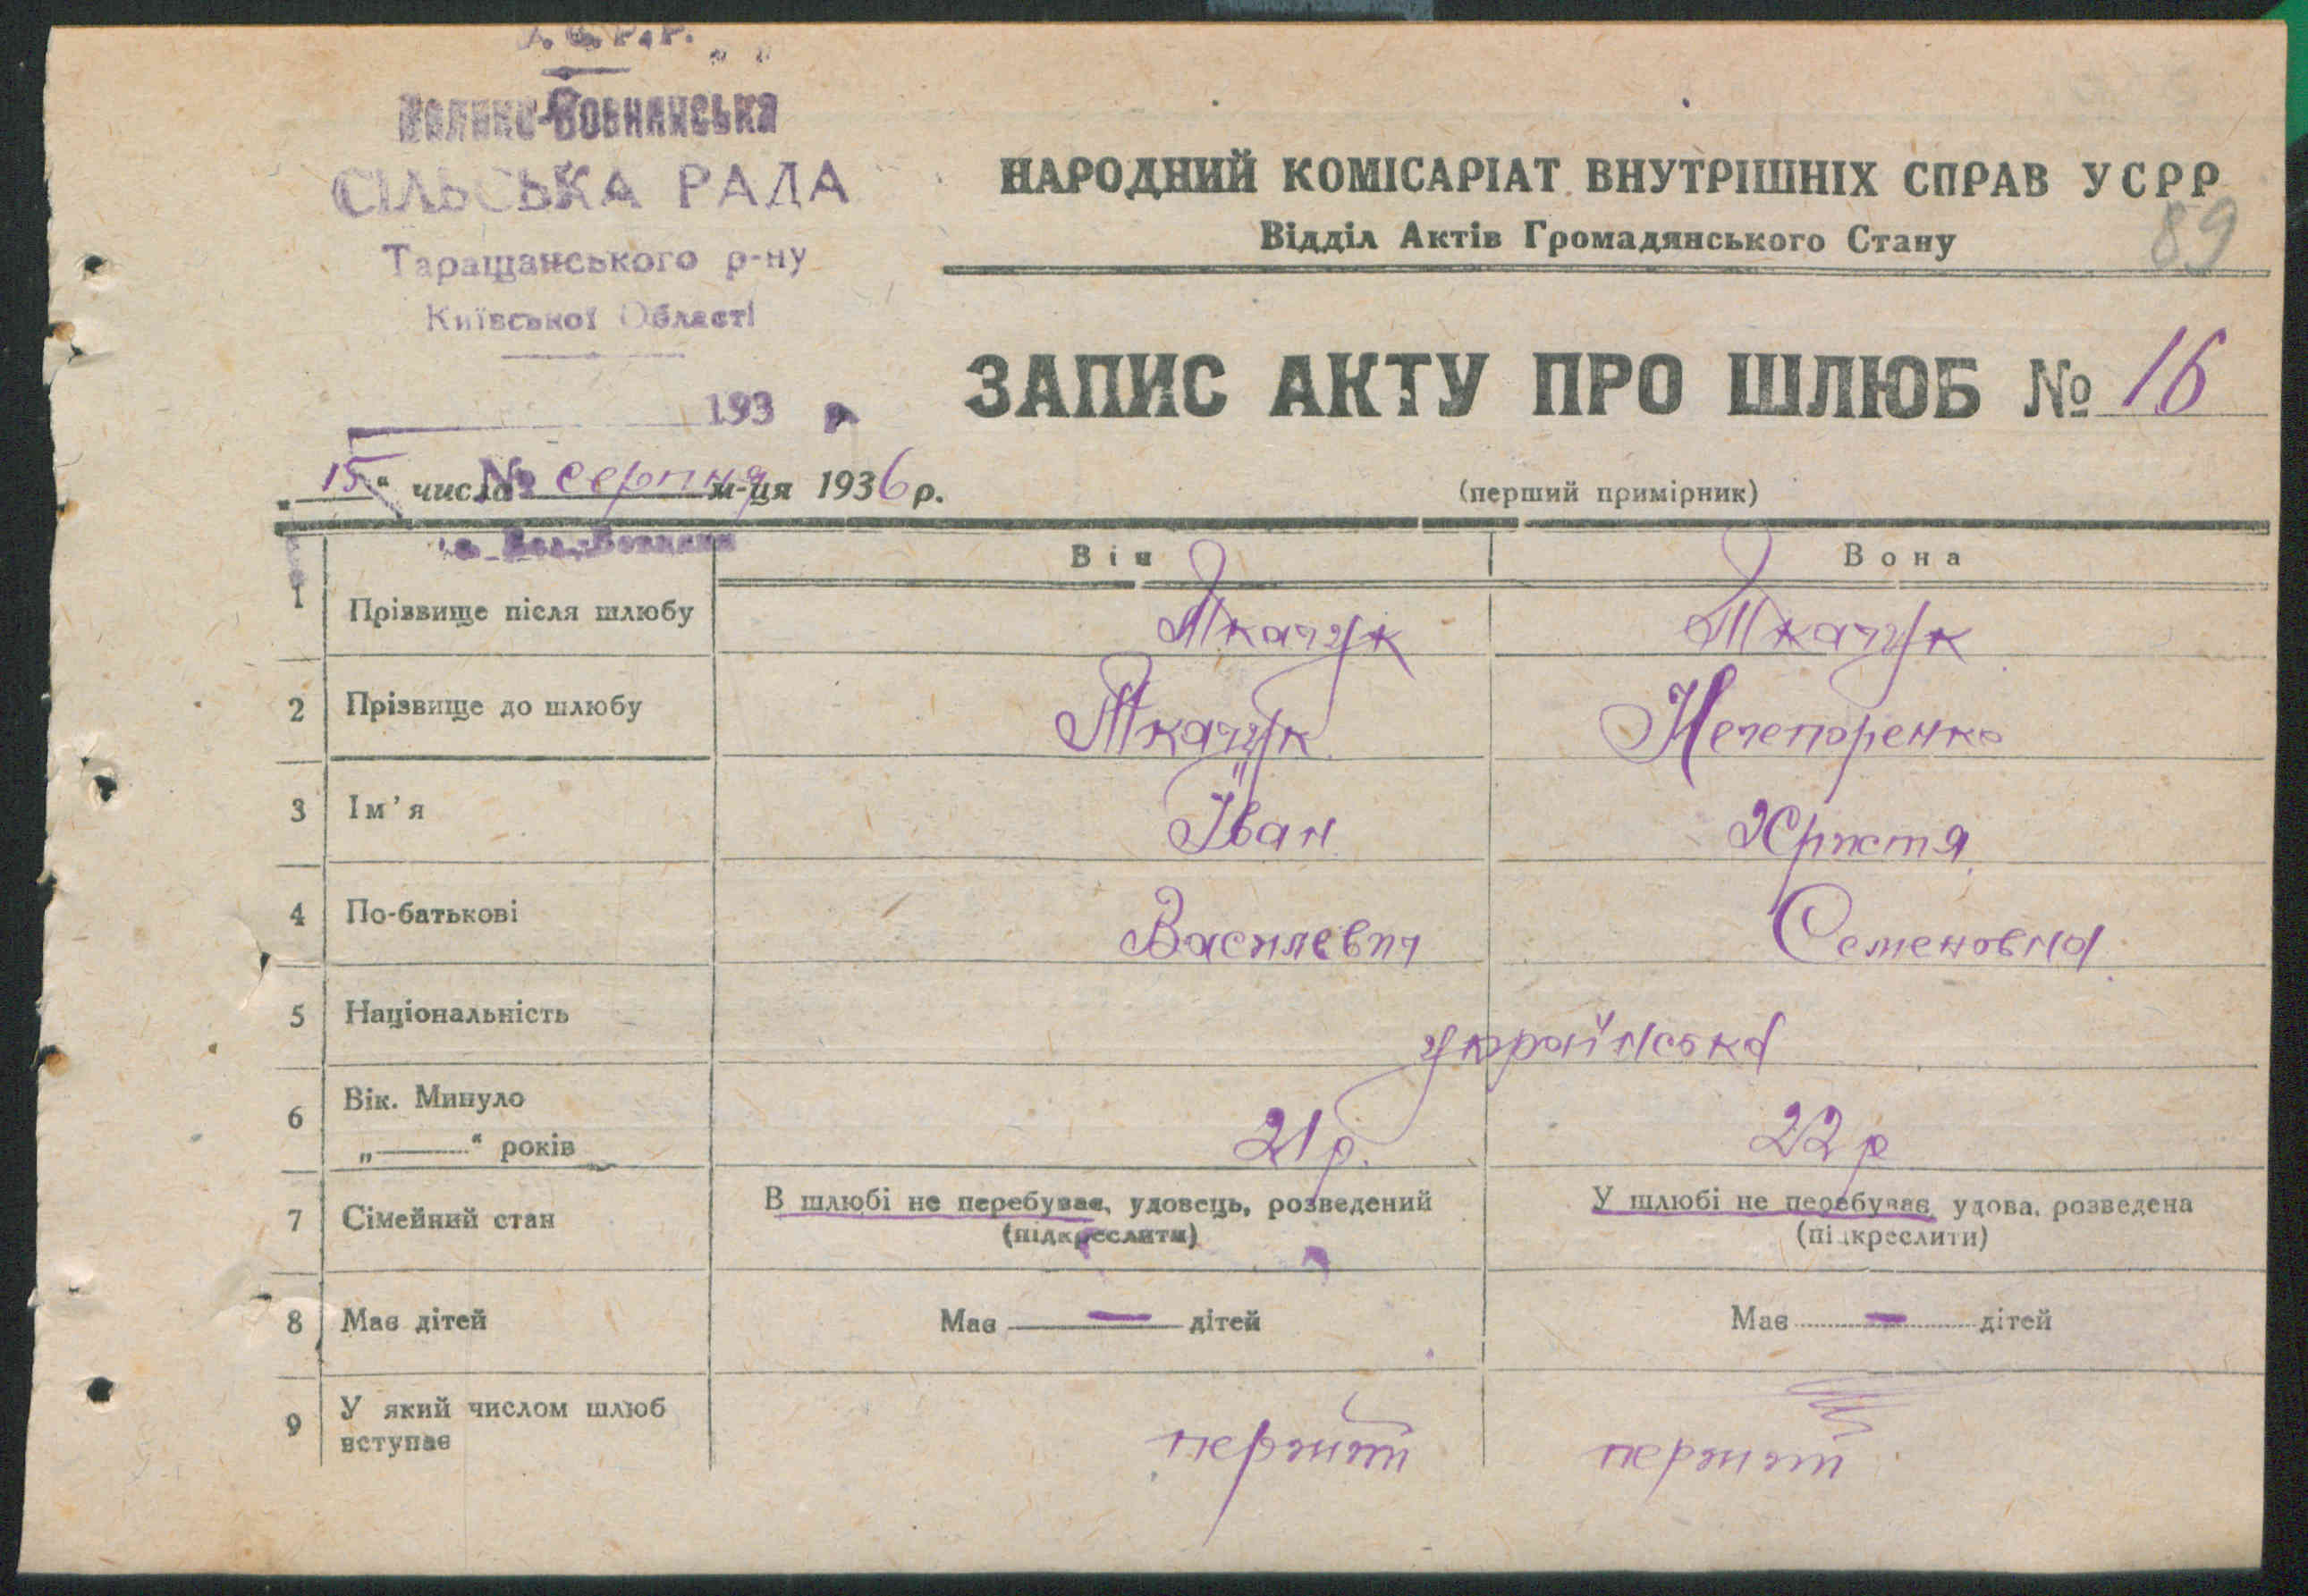 У.С.Р.Р.
Велико-Вовнянська
СІЛЬСЬКА РАДА
Таращанського р-ну
Київської Області
193 р.
№
НАРОДНИЙ КОМІСАРІАТ ВНУТРІШНІХ СПРАВ УСРР
Відділ Актів Громадянського Стану
89
ЗАПИС АКТУ ПРО ШЛЮБ № 16
"15" числа серпня м-ця 1936 р.
(перший примірник)
Він Вона
1 Прізвище після шлюбу Ткачук Ткачук
2 Прізвище до шлюбу Ткачук Нечепоренко
3 Ім'я Іван Христя
4 По-батькові Василевич Семеновна
5 Національність українська
6 Вік. Минуло „——“ років 21 р. 22 р
7 Сімейний стан В шлюбі не перебуває, удовець, розведений (підкреслити) У шлюбі не перебуває, удова, розведена (підкреслити)
8 Має дітей Має — дітей Має — дітей
9 У який числом шлюб вступає перший перший